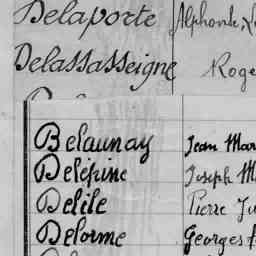 Delaporte Alphonse
Delassasseigne Roge
Delaunay Jean Mar
Delépine Joseph M
Delile Pierre Ju
Delorme Georges